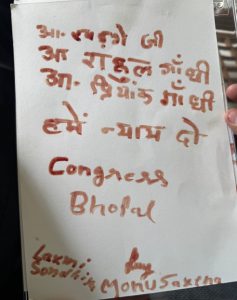 आ. खड़गे जी
आ राहुल गाँधी
आ. प्रियंका गाँधी
हमें न्याय दो
Congress
Bhopal
Laxmi
Monu Saxena